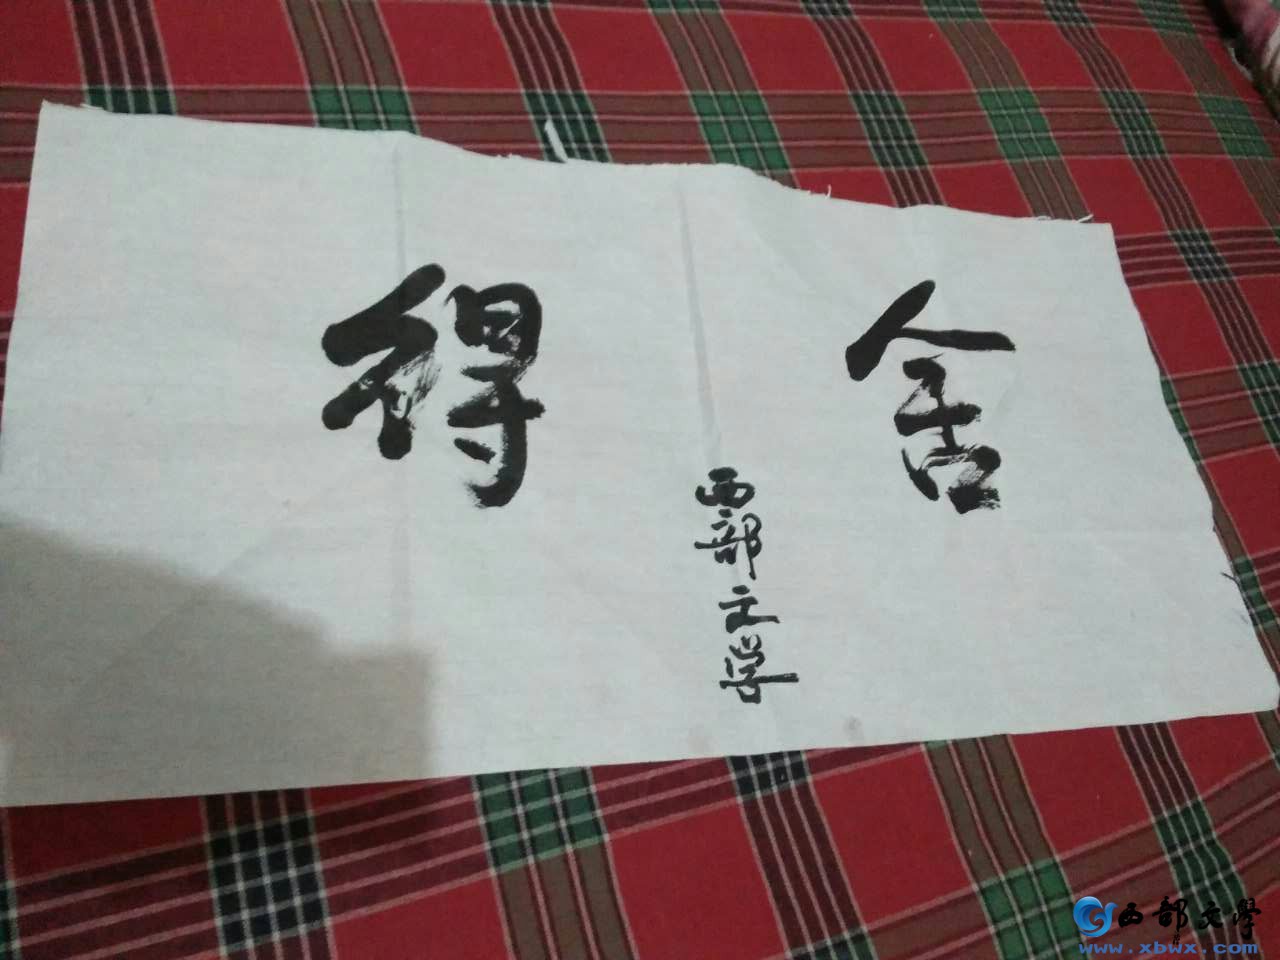 舍得
西部文学
西部文學
www.xbwx.com